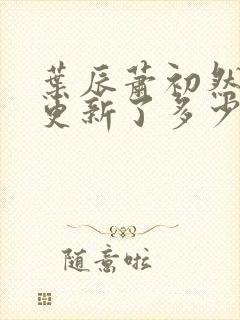 葉辰蕭初然
更新了多少
隨意啦